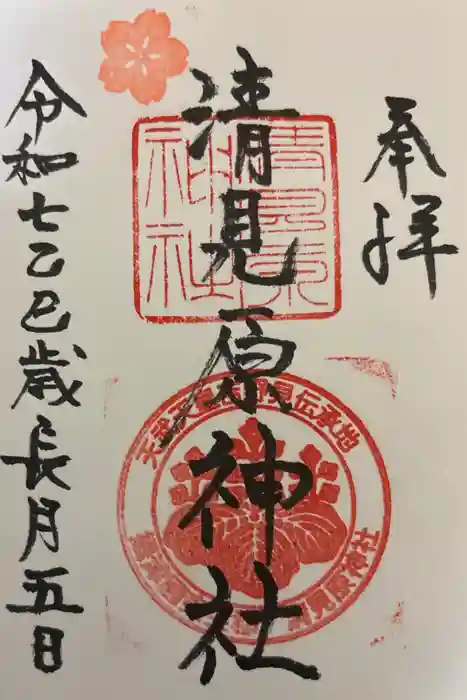 奉拝
清見原神社
清見原神社
令和七乙巳歳長月五日
見伝承地
見原神社